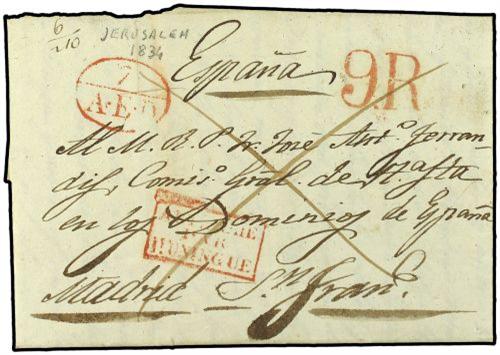 6/210
JERUSALEM
1834
España
9R
7
A.E.D
Al M. R. P. Fr. José Anto. Ferran-
dis, Comiso. Gral. de Ta. Sta
en los Dominios de España
PAR
HUNINGUE
Madrid Sn. Frano.